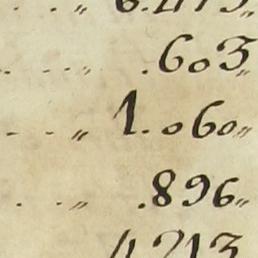 6.475„
.603„
„ 1.060„
„ .896„
4.213